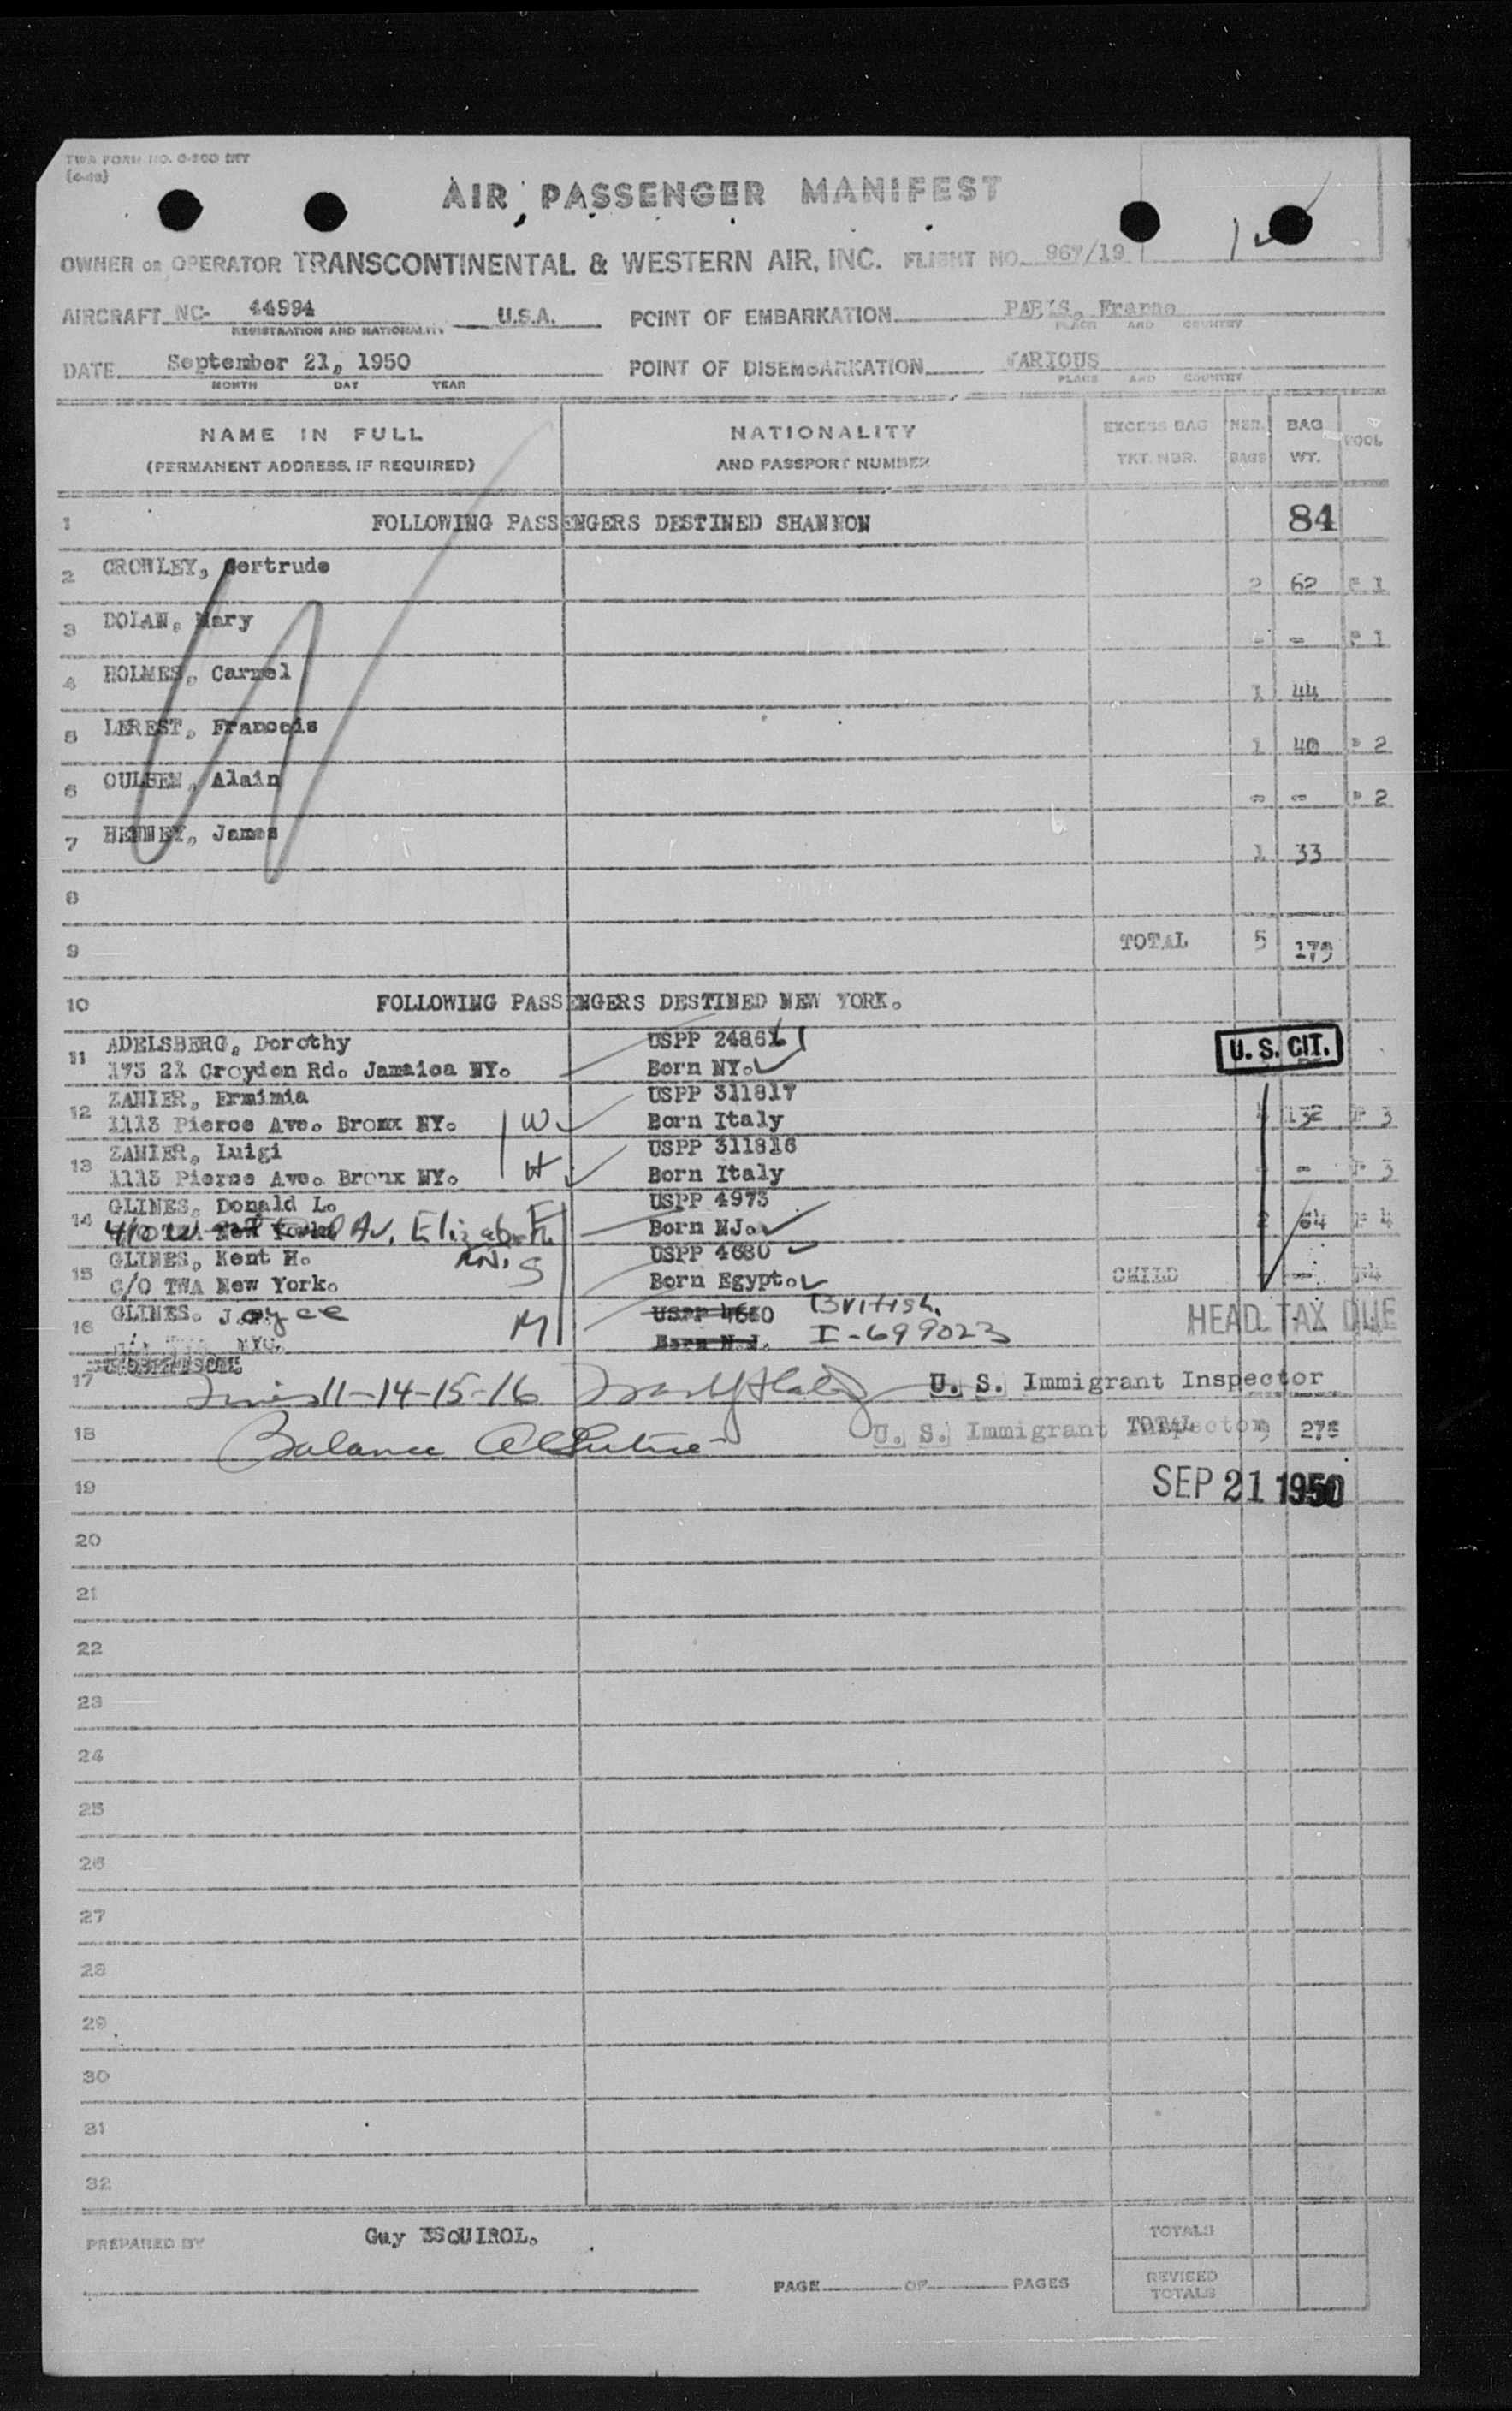 TWA FORM NO. O-200 INT
AIR PASSENGER MANIFEST
OWNER OR OPERATOR TRANSCONTINENTAL & WESTERN AIR, INC. FLIGHT NO. 967/19
AIRCRAFT NC- 44594 U.S.A. POINT OF EMBARKATION PARIS, France
REGISTRATION AND NATIONALITY PLACE AND COUNTRY
DATE September 21, 1950 POINT OF DISEMBARKATION VARIOUS
MONTH DAY YEAR PLACE AND COUNTRY
NAME IN FULL NATIONALITY EXCESS BAG NBR. BAG POOL
(PERMANENT ADDRESS, IF REQUIRED) AND PASSPORT NUMBER TKT. NBR. BAGS WT.
1 FOLLOWING PASSENGERS DESTINED SHANNON 84
2 CROWLEY, Gertrude 2 62 P 1
3 DOLAN, Mary - - P 1
4 HOLMES, Carmel 1 44
5 LEREST, Francois 1 40 P 2
6 Alain - - P 2
7 James 1 33
8
9 TOTAL 5 179
10 FOLLOWING PASSENGERS DESTINED NEW YORK.
ADELSBERG, Dorothy USPP
11 175 21 Croydon Rd. Jamaica NY. Born NY. U. S. CIT.
ZANIER, Ermimia USPP 311817
12 1113 Pierce Ave. Bronx NY. W Born Italy 132 P 3
ZANIER, Luigi USPP 311816
13 1113 Pierce Ave. Bronx NY. H Born Italy - - P 3
GLINES, Donald L. F USPP 4973
14 Av. Elizabeth Born NJ. 2 64 P 4
GLINES, Kent H. N.J. S USPP 4680
15 C/O TWA New York. Born Egypt. CHILD - P4
GLINES. Joyce USPP 4680 British.
16 NYC. M Born N.J. I-699023 HEAD TAX DUE
17 Lines 11-14-15-16 U. S. Immigrant Inspector
18 Balance U. S. Immigrant Inspector TOTAL 9 275
19 SEP 21 1950
20
21
22
23
24
25
26
27
28
29
30
31
32
PREPARED BY Guy ESQUIROL. TOTALS
PAGE OF PAGES REVISED TOTALS